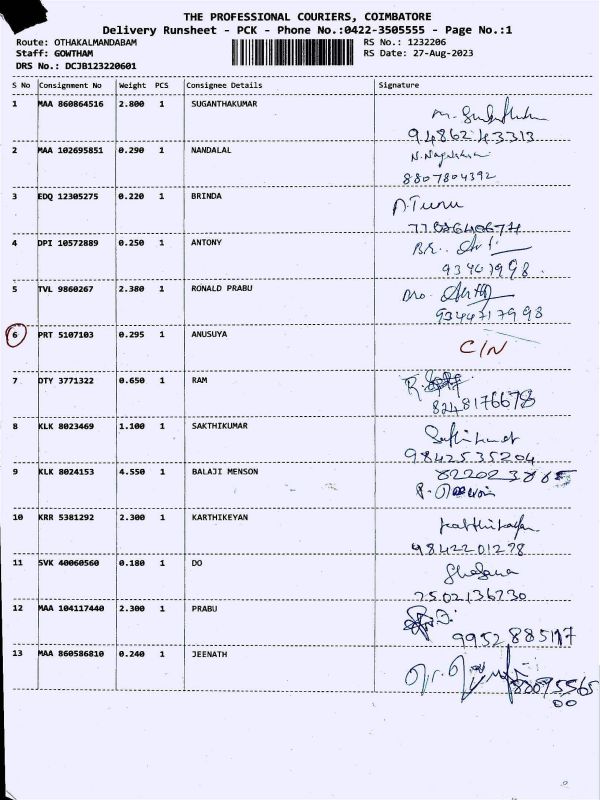 THE PROFESSIONAL COURIERS, COIMBATORE
Delivery Runsheet - PCK - Phone No.:0422-3505555 - Page No.:1
Route: OTHAKALMANDABAM RS No.: 1232206
Staff: GOWTHAM RS Date: 27-Aug-2023
DRS No.: DCJB123220601
S No Consignment No Weight PCS Consignee Details Signature
1 MAA 860864516 2.800 1 SUGANTHAKUMAR
9486243313
2 MAA 102695851 0.290 1 NANDALAL
8807804392
3 EDQ 12305275 0.220 1 BRINDA
4 DPI 10572889 0.250 1 ANTONY
5 TVL 9860267 2.380 1 RONALD PRABU
9344717998
6 PRT 5107103 0.295 1 ANUSUYA C/N
7 DTY 3771322 0.650 1 RAM
8248176678
8 KLK 8023469 1.100 1 SAKTHIKUMAR
9842535204
9 KLK 8024153 4.550 1 BALAJI MENSON
10 KRR 5381292 2.300 1 KARTHIKEYAN
9842201278
11 SVK 40060560 0.180 1 DO
7502136730
12 MAA 104117440 2.300 1 PRABU
13 MAA 860586810 0.240 1 JEENATH